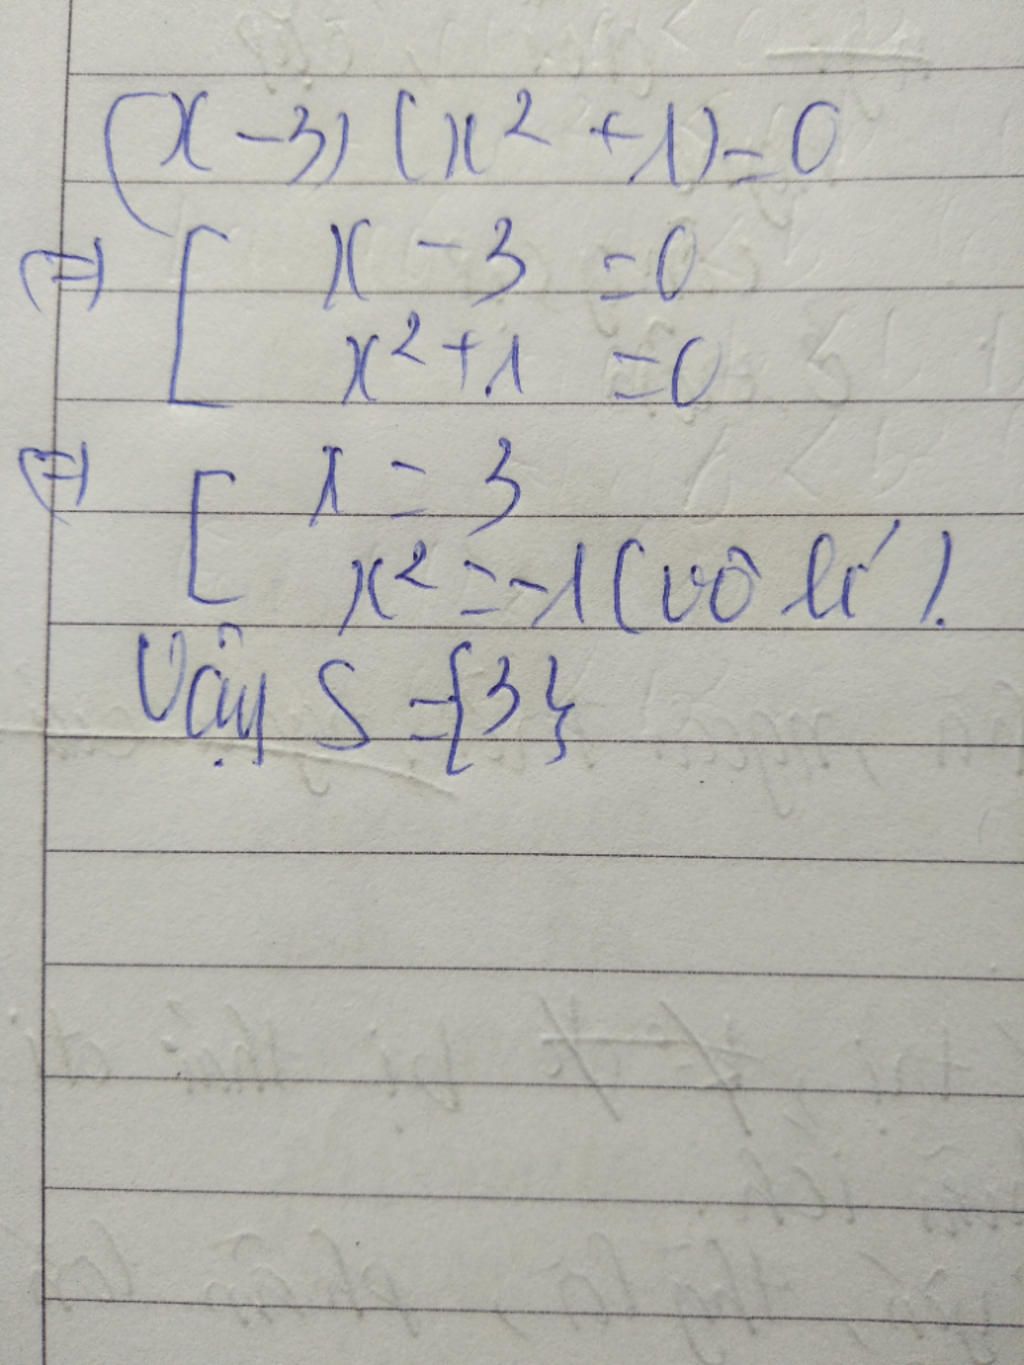 (x-3)(x²+1)=0
⇔ [ x-3 =0
x²+1 =0
⇔ [ x = 3
x² = -1 (vô lí).
Vậy S = {3}